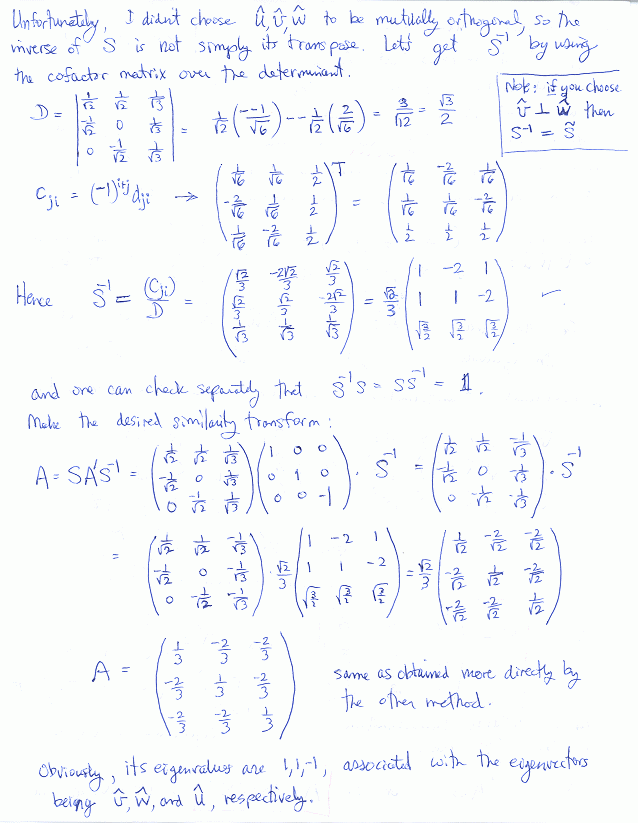 Unfortunately, I didn't choose û, v̂, ŵ to be mutually orthogonal, so the
inverse of S is not simply its transpose. Let's get S⁻¹ by using
the cofactor matrix over the determinant.
Note: if you choose
v̂ ⊥ ŵ then
S⁻¹ = S̃
D = | 1/√2 1/√2 1/√3 ; -1/√2 0 1/√3 ; 0 -1/√2 1/√3 | = 1/√2 (--1/√6) - -1/√2 (2/√6) = 3/√12 = √3/2
C_ji = (-1)^(i+j) d_ji → ( 1/√6 1/√6 1/2 ; -2/√6 1/√6 1/2 ; 1/√6 -2/√6 1/2 )^T = ( 1/√6 -2/√6 1/√6 ; 1/√6 1/√6 -2/√6 ; 1/2 1/2 1/2 )
Hence S⁻¹ = (C_ji)/D = ( √2/3 -2√2/3 √2/3 ; √2/3 √2/3 -2√2/3 ; 1/√3 1/√3 1/√3 ) = √2/3 ( 1 -2 1 ; 1 1 -2 ; √(3/2) √(3/2) √(3/2) ) ✓
and one can check separately that S⁻¹S = SS⁻¹ = 1.
Make the desired similarity transform:
A = SA'S⁻¹ = ( 1/√2 1/√2 1/√3 ; -1/√2 0 1/√3 ; 0 -1/√2 1/√3 ) ( 1 0 0 ; 0 1 0 ; 0 0 -1 ) · S⁻¹ = ( 1/√2 1/√2 -1/√3 ; -1/√2 0 -1/√3 ; 0 -1/√2 -1/√3 ) · S⁻¹
= ( 1/√2 1/√2 -1/√3 ; -1/√2 0 -1/√3 ; 0 -1/√2 -1/√3 ) · √2/3 ( 1 -2 1 ; 1 1 -2 ; √(3/2) √(3/2) √(3/2) ) = √2/3 ( 1/√2 -2/√2 -2/√2 ; -2/√2 1/√2 -2/√2 ; -2/√2 -2/√2 1/√2 )
A = ( 1/3 -2/3 -2/3 ; -2/3 1/3 -2/3 ; -2/3 -2/3 1/3 ) same as obtained more directly by
the other method.
Obviously, its eigenvalues are 1,1,-1, associated with the eigenvectors
being v̂, ŵ, and û, respectively.